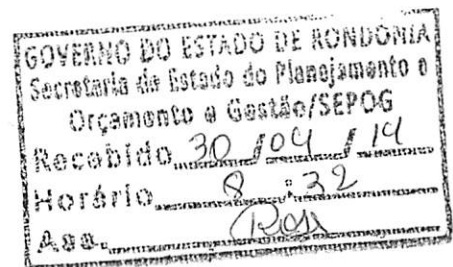 GOVERNO DO ESTADO DE RONDÔNIA
Secretaria de Estado do Planejamento e
Orçamento e Gestão/SEPOG
Recebido 30/04/14
Horário 8:32
Ass.